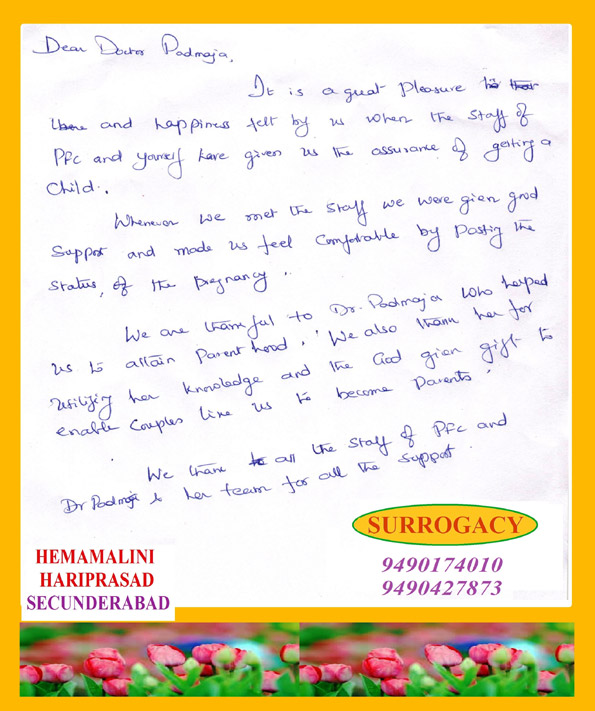 Dear Doctor Padmaja,
It is a great Pleasure
and happiness felt by us when the staff of
PFC and yourself have given us the assurance of getting a
Child.
Whenever we met the staff we were given good
Support and made us feel Comfortable by Posting the
Status, of the Pregnancy.
We are thankful to Dr. Padmaja who helped
us to attain Parent hood. We also thank her for
utilizing her knowledge and the God given gift to
enable Couples like us to become Parents.
We thank all the staff of PFC and
Dr Padmaja & her team for all the support.
SURROGACY
HEMAMALINI
HARIPRASAD
SECUNDERABAD
9490174010
9490427873